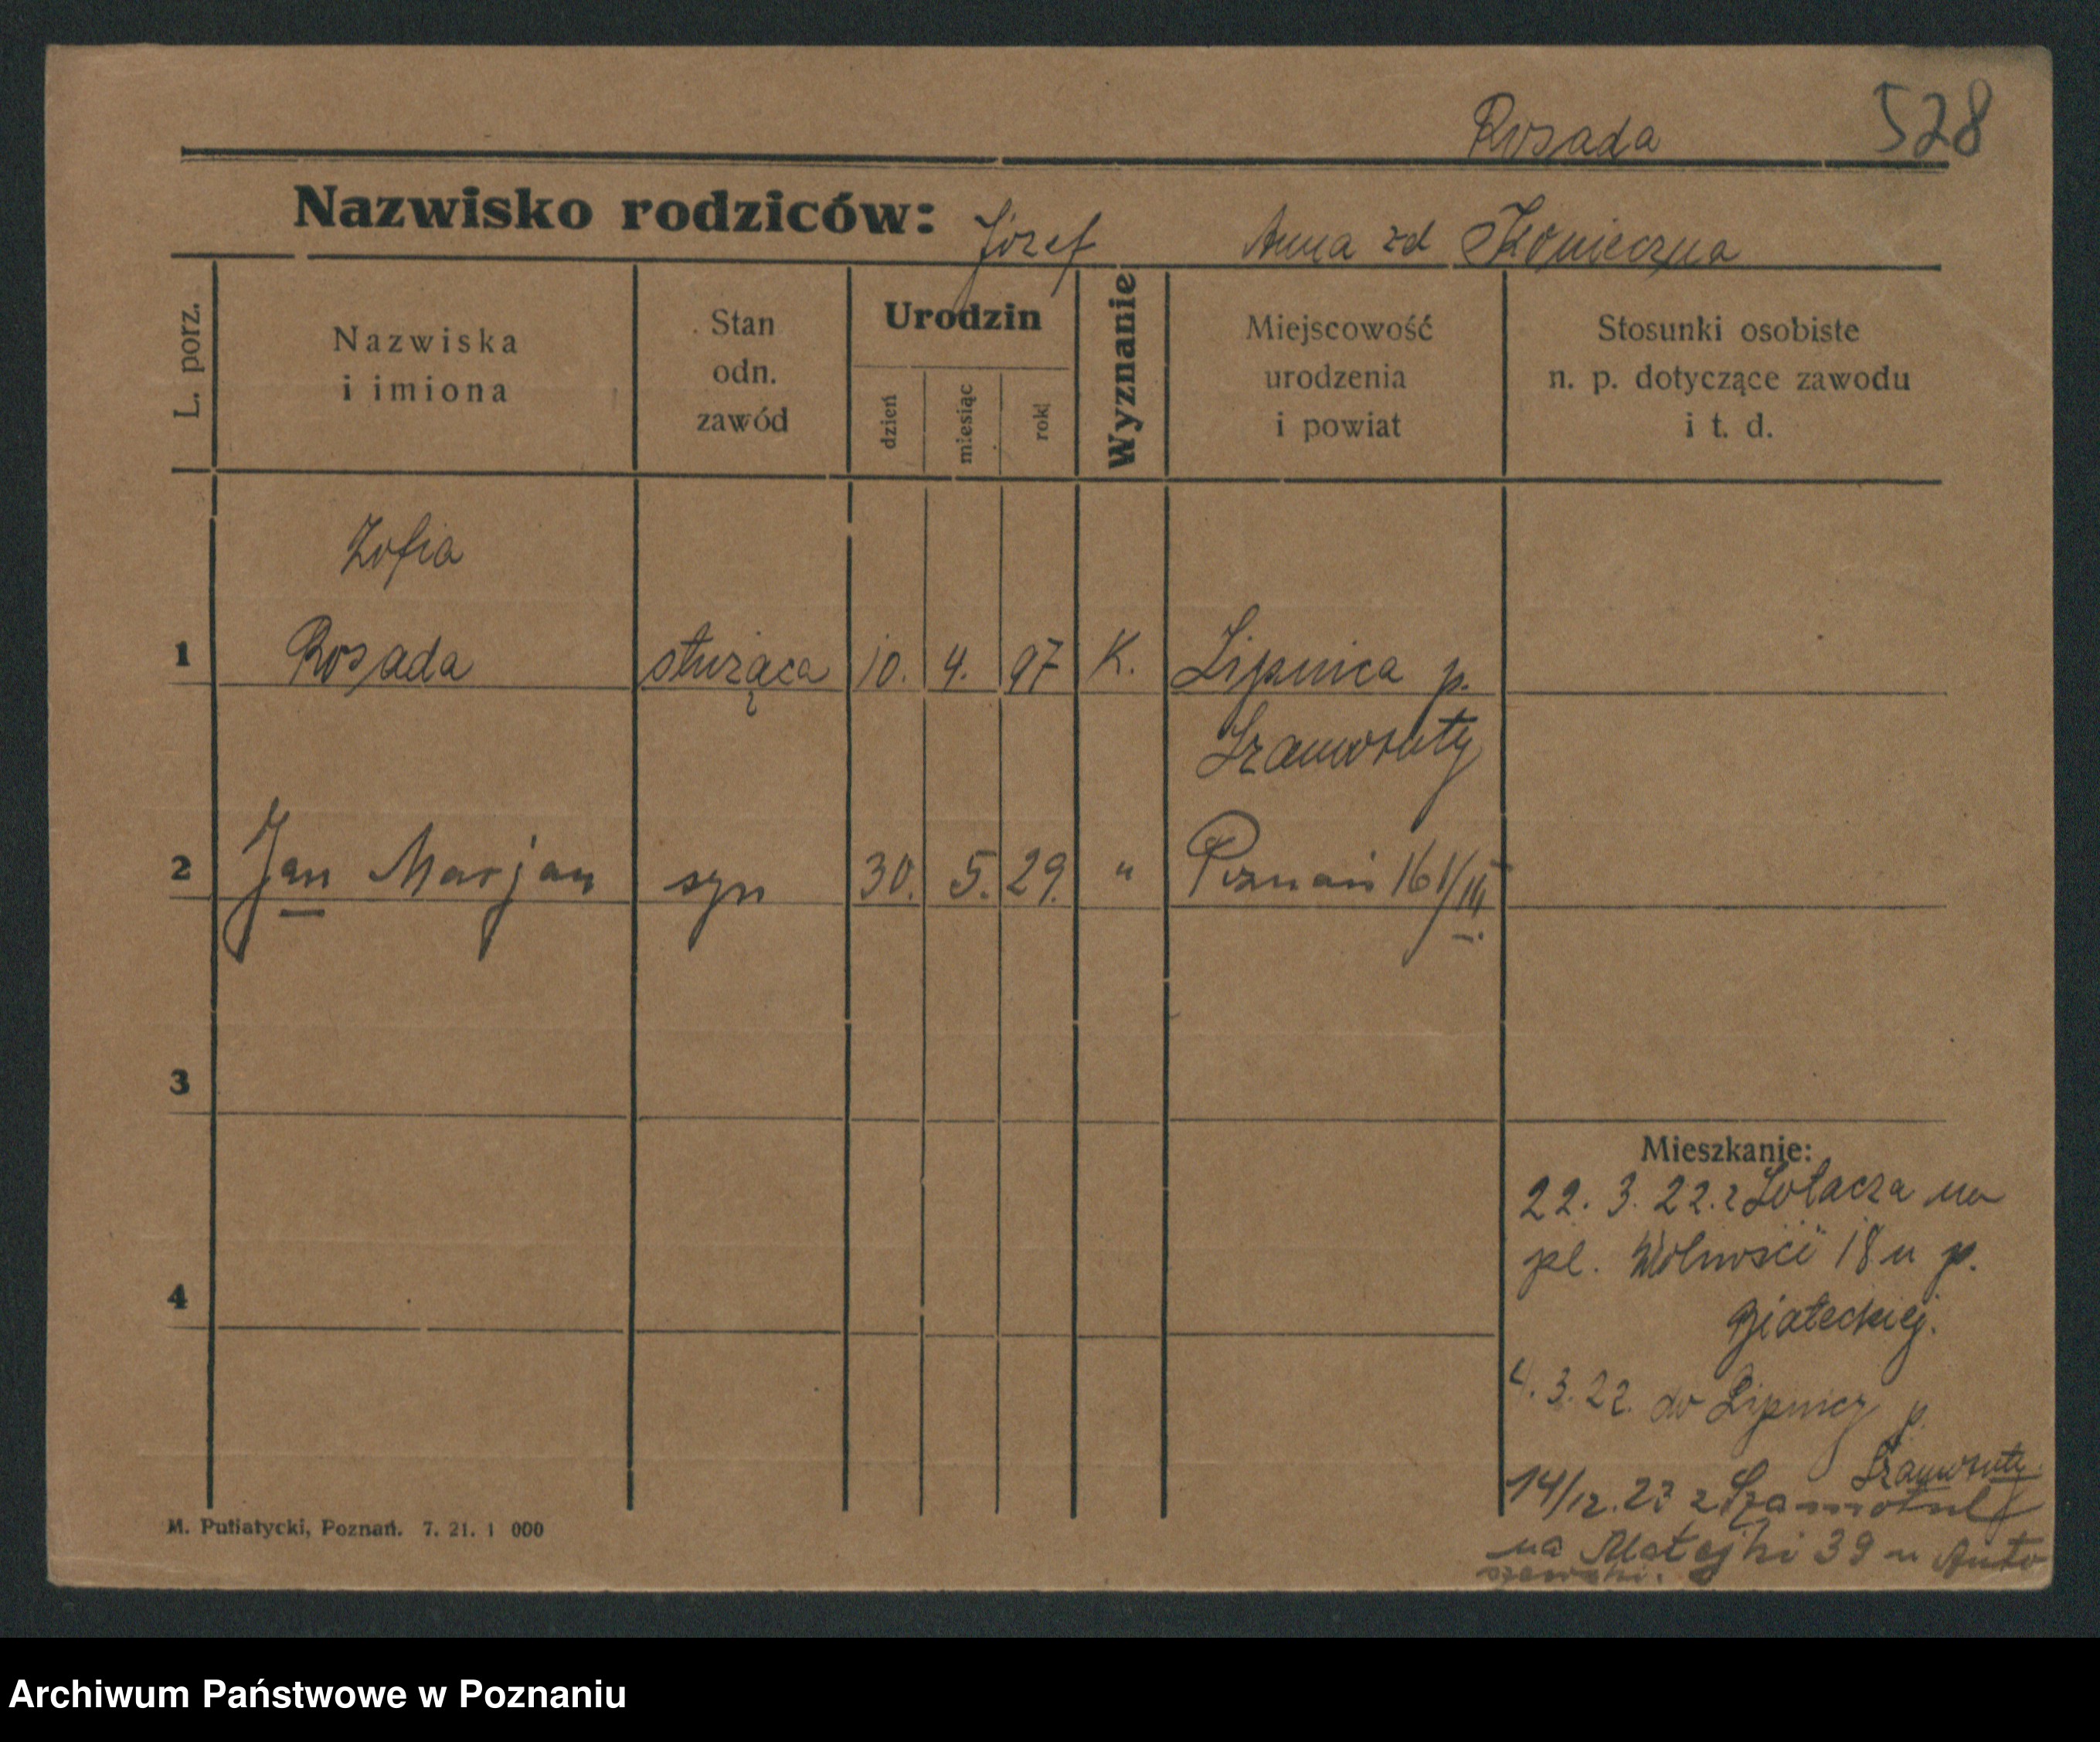 Rosada 528
Nazwisko rodziców: Józef Anna zd Konieczna
L. porz.
Nazwiska
i imiona
Stan
odn.
zawód
Urodzin
dzień
miesiąc
rok
Wyznanie
Miejscowość
urodzenia
i powiat
Stosunki osobiste
n. p. dotyczące zawodu
i t. d.
Zofia
1 Rosada służąca 10. 4. 97 K. Lipnica p.
Szamotuły
2 Jan Marjan syn 30. 5. 29. " Poznań 161/III.
3
4
Mieszkanie:
22. 3. 22. z Sołacza na
pl. Wolności 18 u p.
Białeckiej.
4. 3. 22. do Lipnicy p.
Szamotuły.
14/12. 23 z Szamotuł
na Matejki 39 u Anto
szewski.
M. Putiatycki, Poznań. 7. 21. 1 000
Archiwum Państwowe w Poznaniu